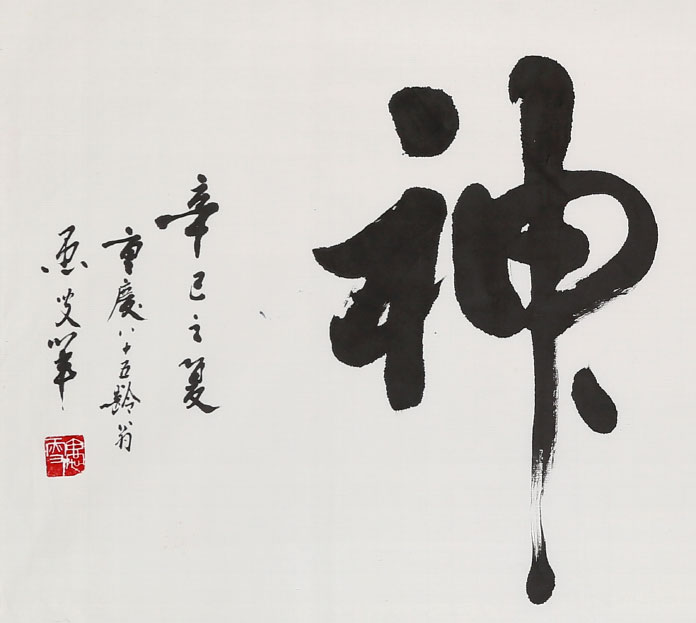 神
辛巳之夏
重慶八十五齡翁
愚叟筆